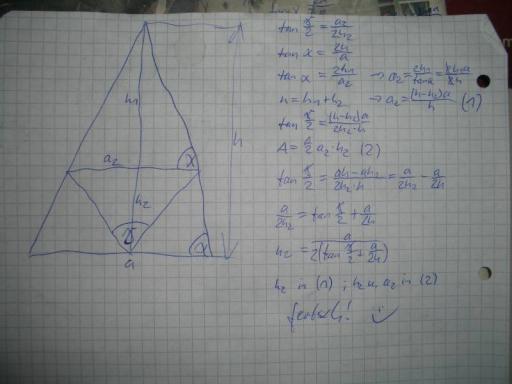 h₁
h
a₂
α
h₂
γ
α
a
tan γ/2 = a₂/2h₂
tan α = 2h/a
tan α = 2h₁/a₂ → a₂ = 2h₁/tanα = 2h₁a/2h
h = h₁ + h₂ → a₂ = (h-h₂)a/h (1)
tan γ/2 = (h-h₂)a/2h₂·h
A = 1/2 a₂·h₂ (2)
tan γ/2 = ah-ah₂/2h₂·h = a/2h₂ - a/2h
a/2h₂ = tan γ/2 + a/2h
h₂ = a/2(tan γ/2 + a/2h)
h₂ in (1) ; h₂ u. a₂ in (2)